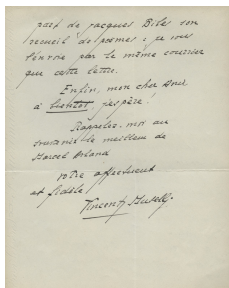 part de Jacques Bile son
recueil de poèmes ; je vous
l'envoie par le même courrier
que cette lettre.
Enfin, mon cher ami
à bientôt, j'espère !
Rappelez-moi au
souvenir le meilleur de
Marcel Arland
votre affectueux
et fidèle
Vincent Muselli.